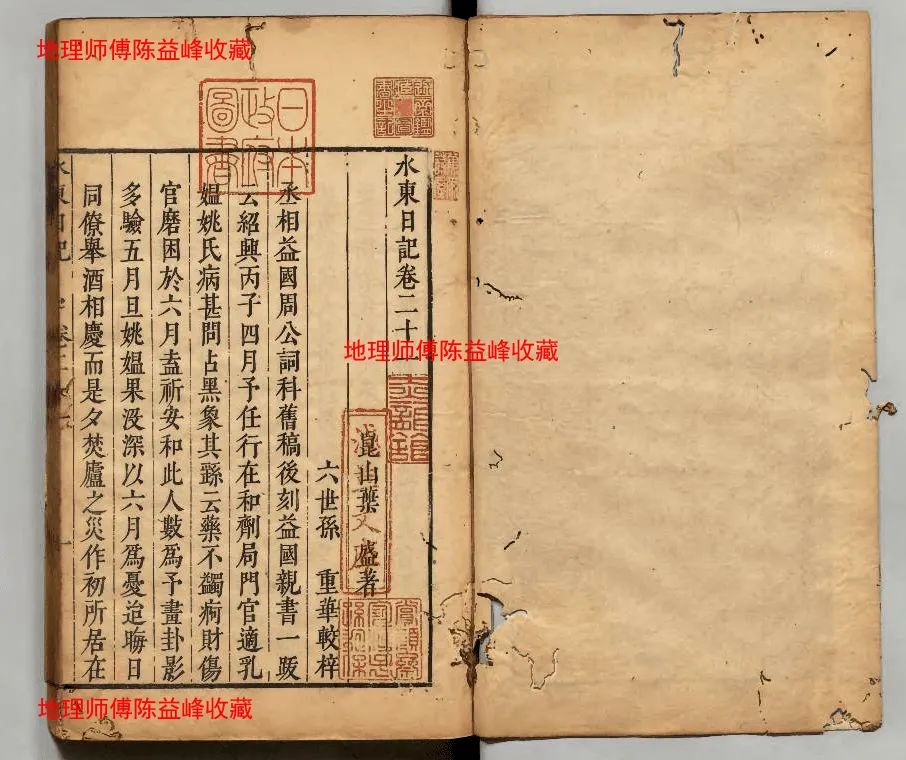 地理师傅陈益峰收藏
日本
政府
圖書
水東日記卷二十一
崑山葉 盛著
六世孫 重華較梓
丞相益國周公詞科舊稿後刻益國親書一跋
云紹興丙子四月予任行在和劑局門官適乳
媼姚氏病甚問占黑象其繇云藥不蠲痾財傷
官磨困於六月盍祈安和此人數爲予畫卦影
多驗五月旦姚媼果沒深以六月爲憂迨晦日
同僚舉酒相慶而是夕焚廬之災作初所居在
水東日記
地理师傅陈益峰收藏
地理师傅陈益峰收藏